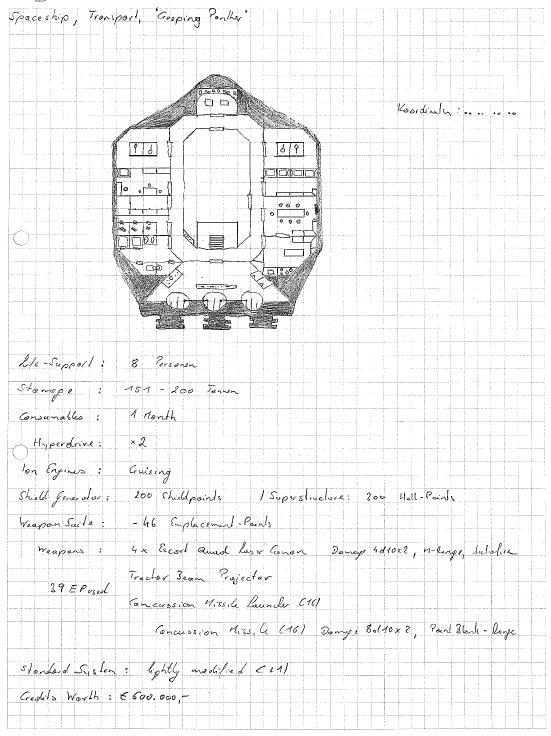 Spaceship, Transport, "Creeping Panther"
Koordinaten : .. .. .. ..
Life-Support : 8 Personen
Storage : 151 - 200 Tonnen
Consumables : 1 Month
Hyperdrive : x2
Ion Engines : Cruising
Shield Generator : 200 Shieldpoints / Superstructure : 200 Hull-Points
Weapon Suite : - 46 Emplacement-Points
Weapons : 4x Escort Quad Laser Canon Damage 4d10x2, M-Range,
39 EP used Tractor Beam Projector
Concussion Missile Launcher (16)
Concussion Missile (16) Damage 8d10x2, Point Blank-Range
Standard System : lightly modified (L1)
Credits Worth : € 600.000,-